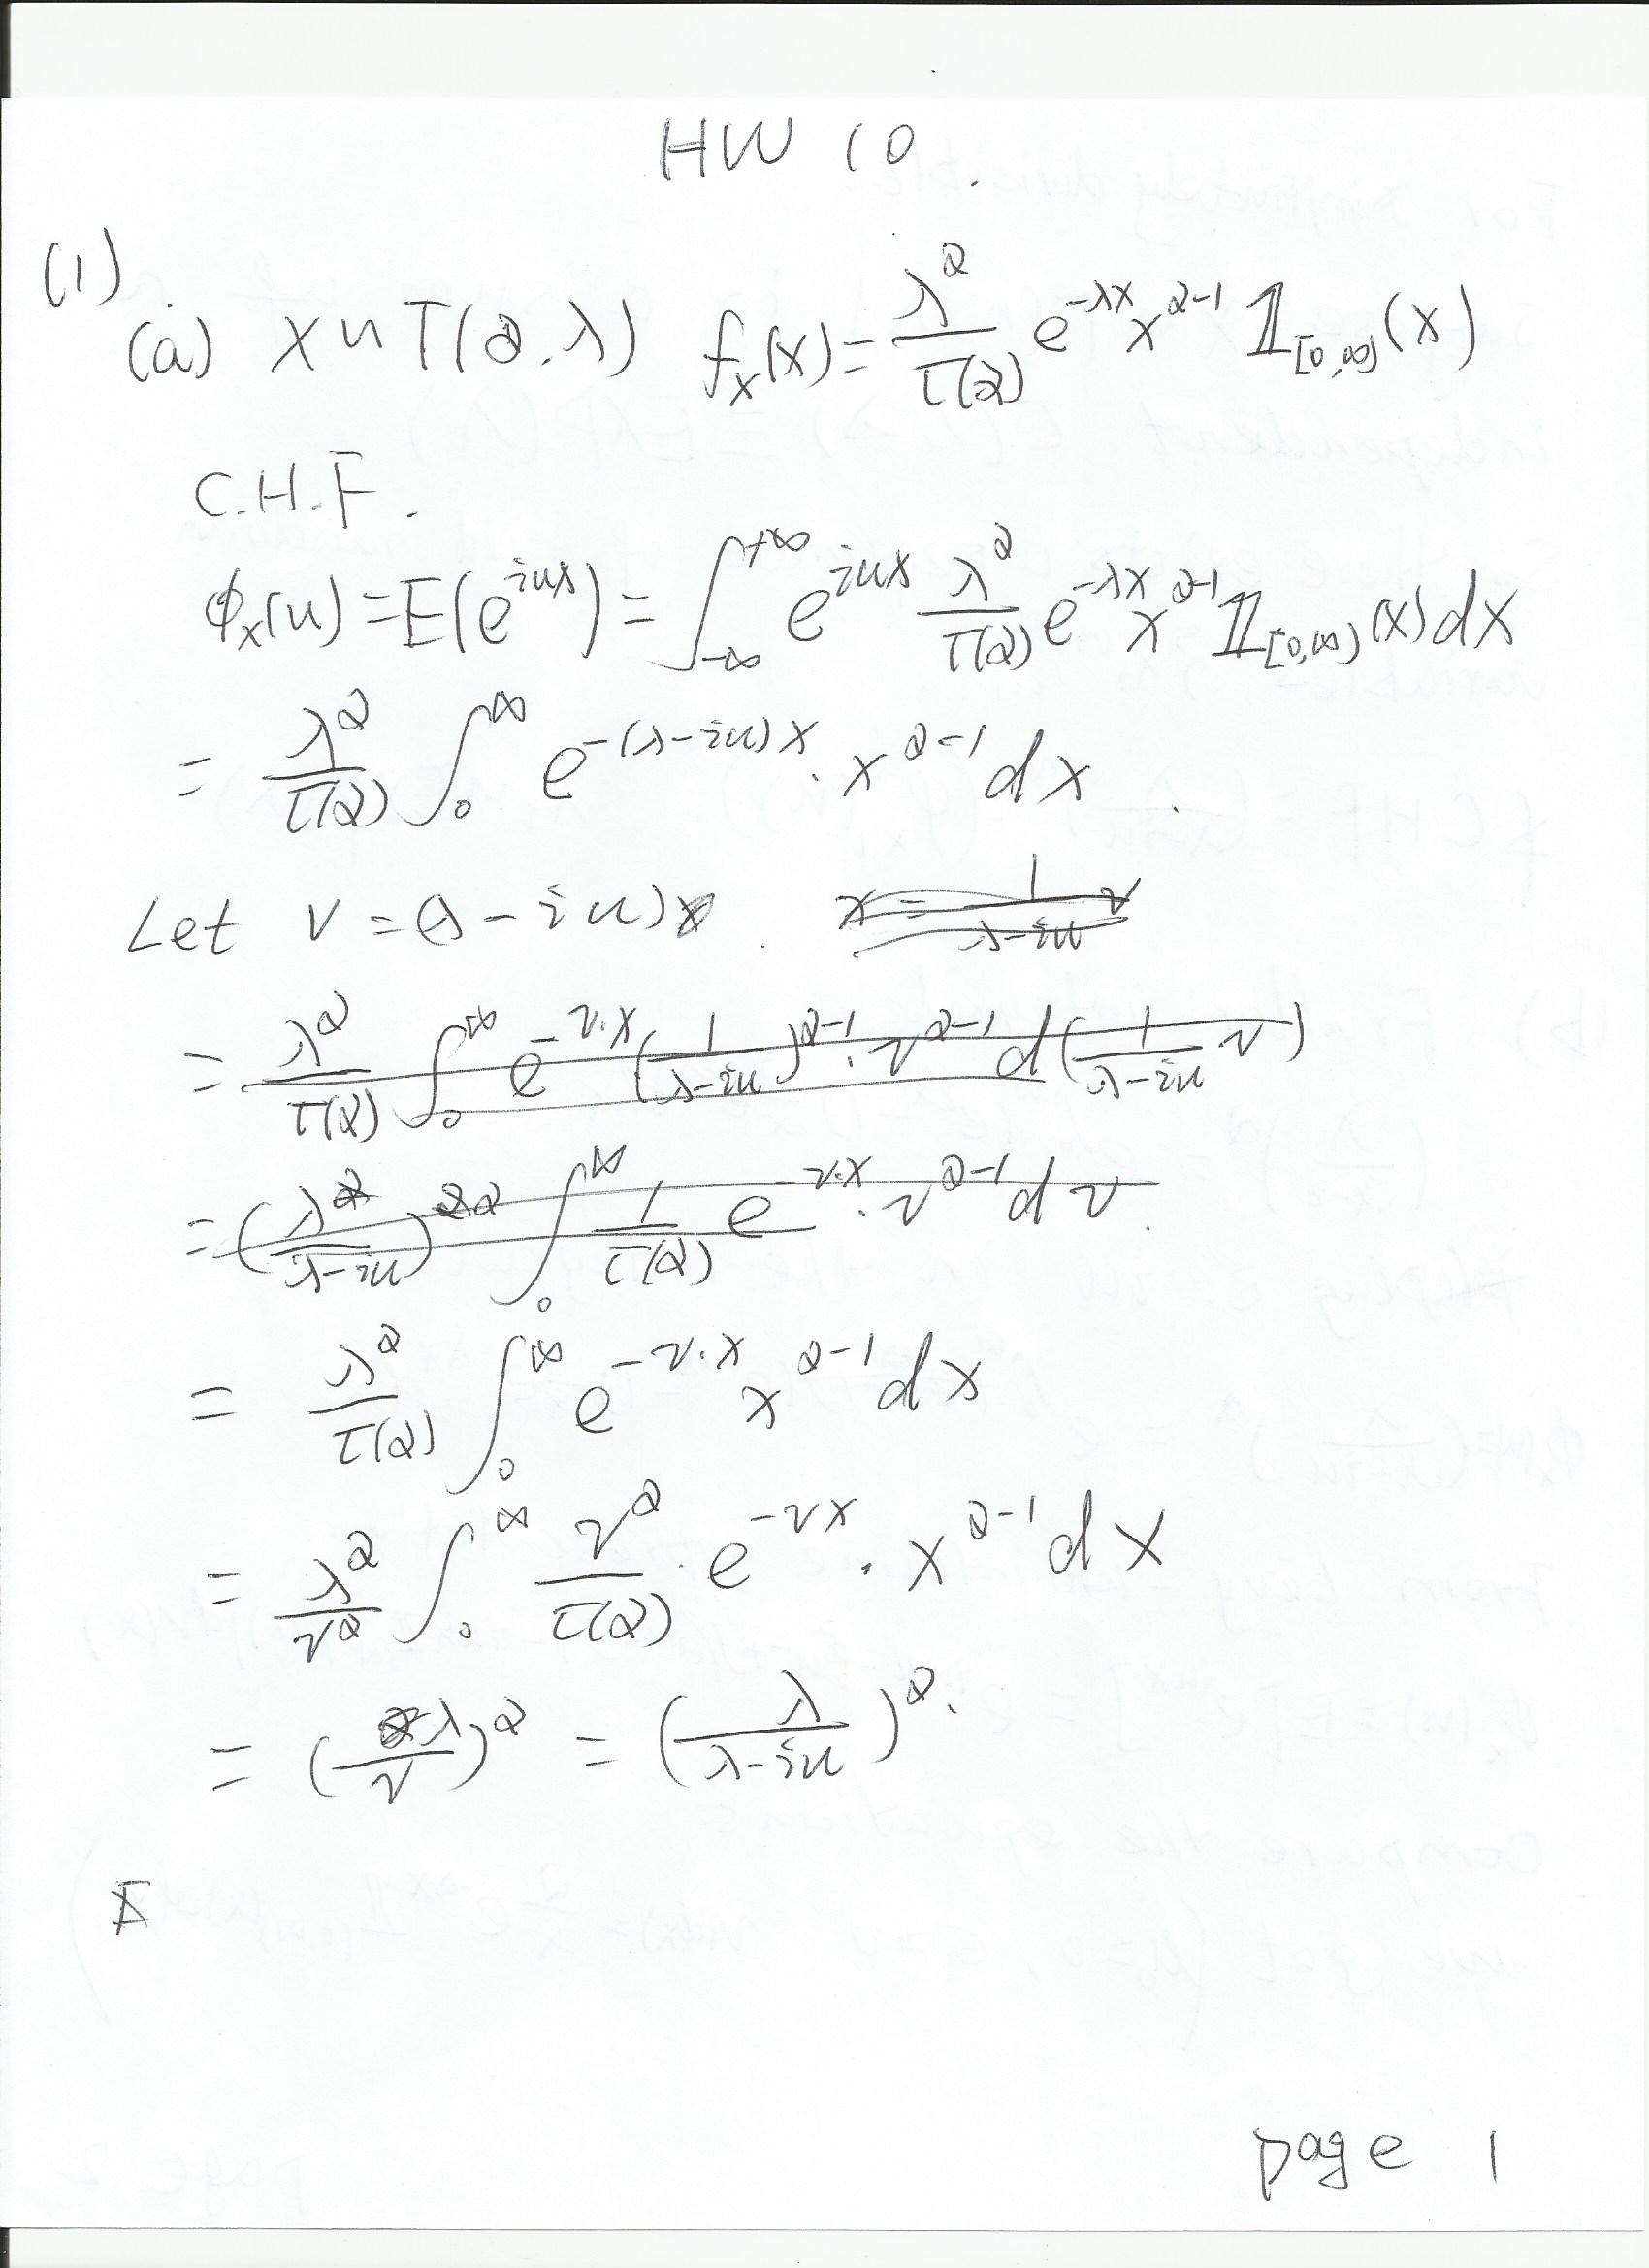 HW 10.
(1)
(a) X ~ Γ(α, λ) f_X(x) = \frac{λ^α}{Γ(α)} e^{-λx} x^{α-1} 𝟙_{[0,∞)}(x)
C.H.F.
ϕ_x(u) = E(e^{iux}) = ∫_{-∞}^{+∞} e^{iux} \frac{λ^α}{Γ(α)} e^{-λx} x^{α-1} 𝟙_{[0,∞)}(x) dx
= \frac{λ^α}{Γ(α)} ∫_0^∞ e^{-(λ-iu)x} · x^{α-1} dx.
Let v = (λ - iu)x. x = \frac{1}{λ-iu} v
= \frac{λ^α}{Γ(α)} ∫_0^∞ e^{-v·x} (\frac{1}{λ-iu})^{α-1} · v^{α-1} d(\frac{1}{λ-iu} v)
= (\frac{λ}{λ-iu})^α ∫_0^∞ \frac{1}{Γ(α)} e^{-v·x} · v^{α-1} dv.
= \frac{λ^α}{Γ(α)} ∫_0^∞ e^{-v·x} x^{α-1} dx
= \frac{λ^α}{v^α} ∫_0^∞ \frac{v^α}{Γ(α)} · e^{-vx} · x^{α-1} dx
= (\frac{λ}{v})^α = (\frac{λ}{λ-iu})^α.
page 1